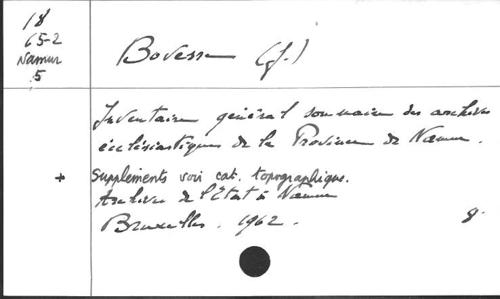 18
65-2
Namur
5
Bovesse (J.)
Inventaire général sommaire des archives
ecclésiastiques de la Province de Namur.
+ Suppléments voir cat. topographique.
Archives de l'Etat à Namur
Bruxelles. 1962. 8°